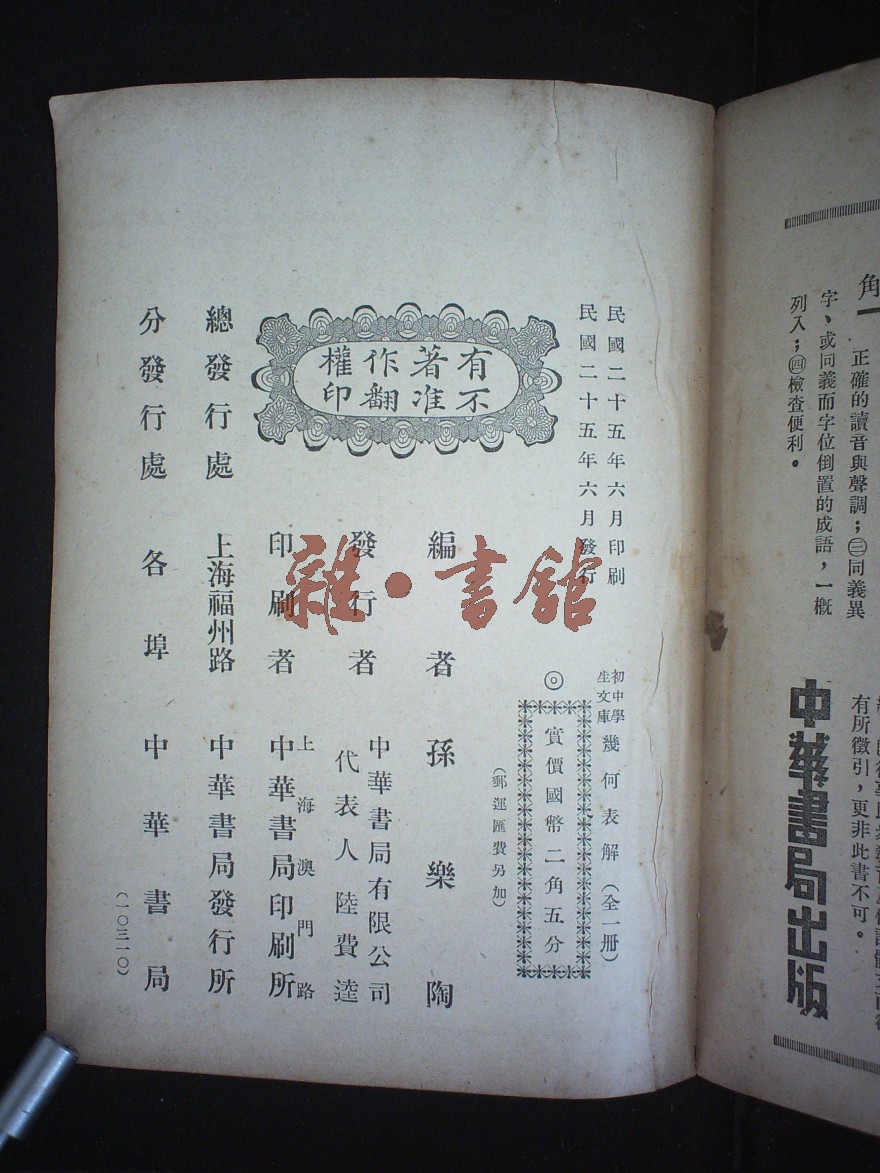 民國二十五年六月印刷
民國二十五年六月發行
初中學生文庫 幾何表解（全一冊）
◎實價國幣二角五分
（郵運匯費另加）
有著作權
不准翻印
編者 孫樂陶
發行者 中華書局有限公司
代表人 陸費逵
印刷者 上海澳門路
中華書局印刷所
總發行處 上海福州路 中華書局發行所
分發行處 各埠中華書局
（一〇三一〇）
雜·書館
角
正確的讀音與聲調；㊂同義異
字、或同義而字位倒置的成語，一概
列入；㊃檢查便利。
有所徵引，更非此書不可。
中華書局出版